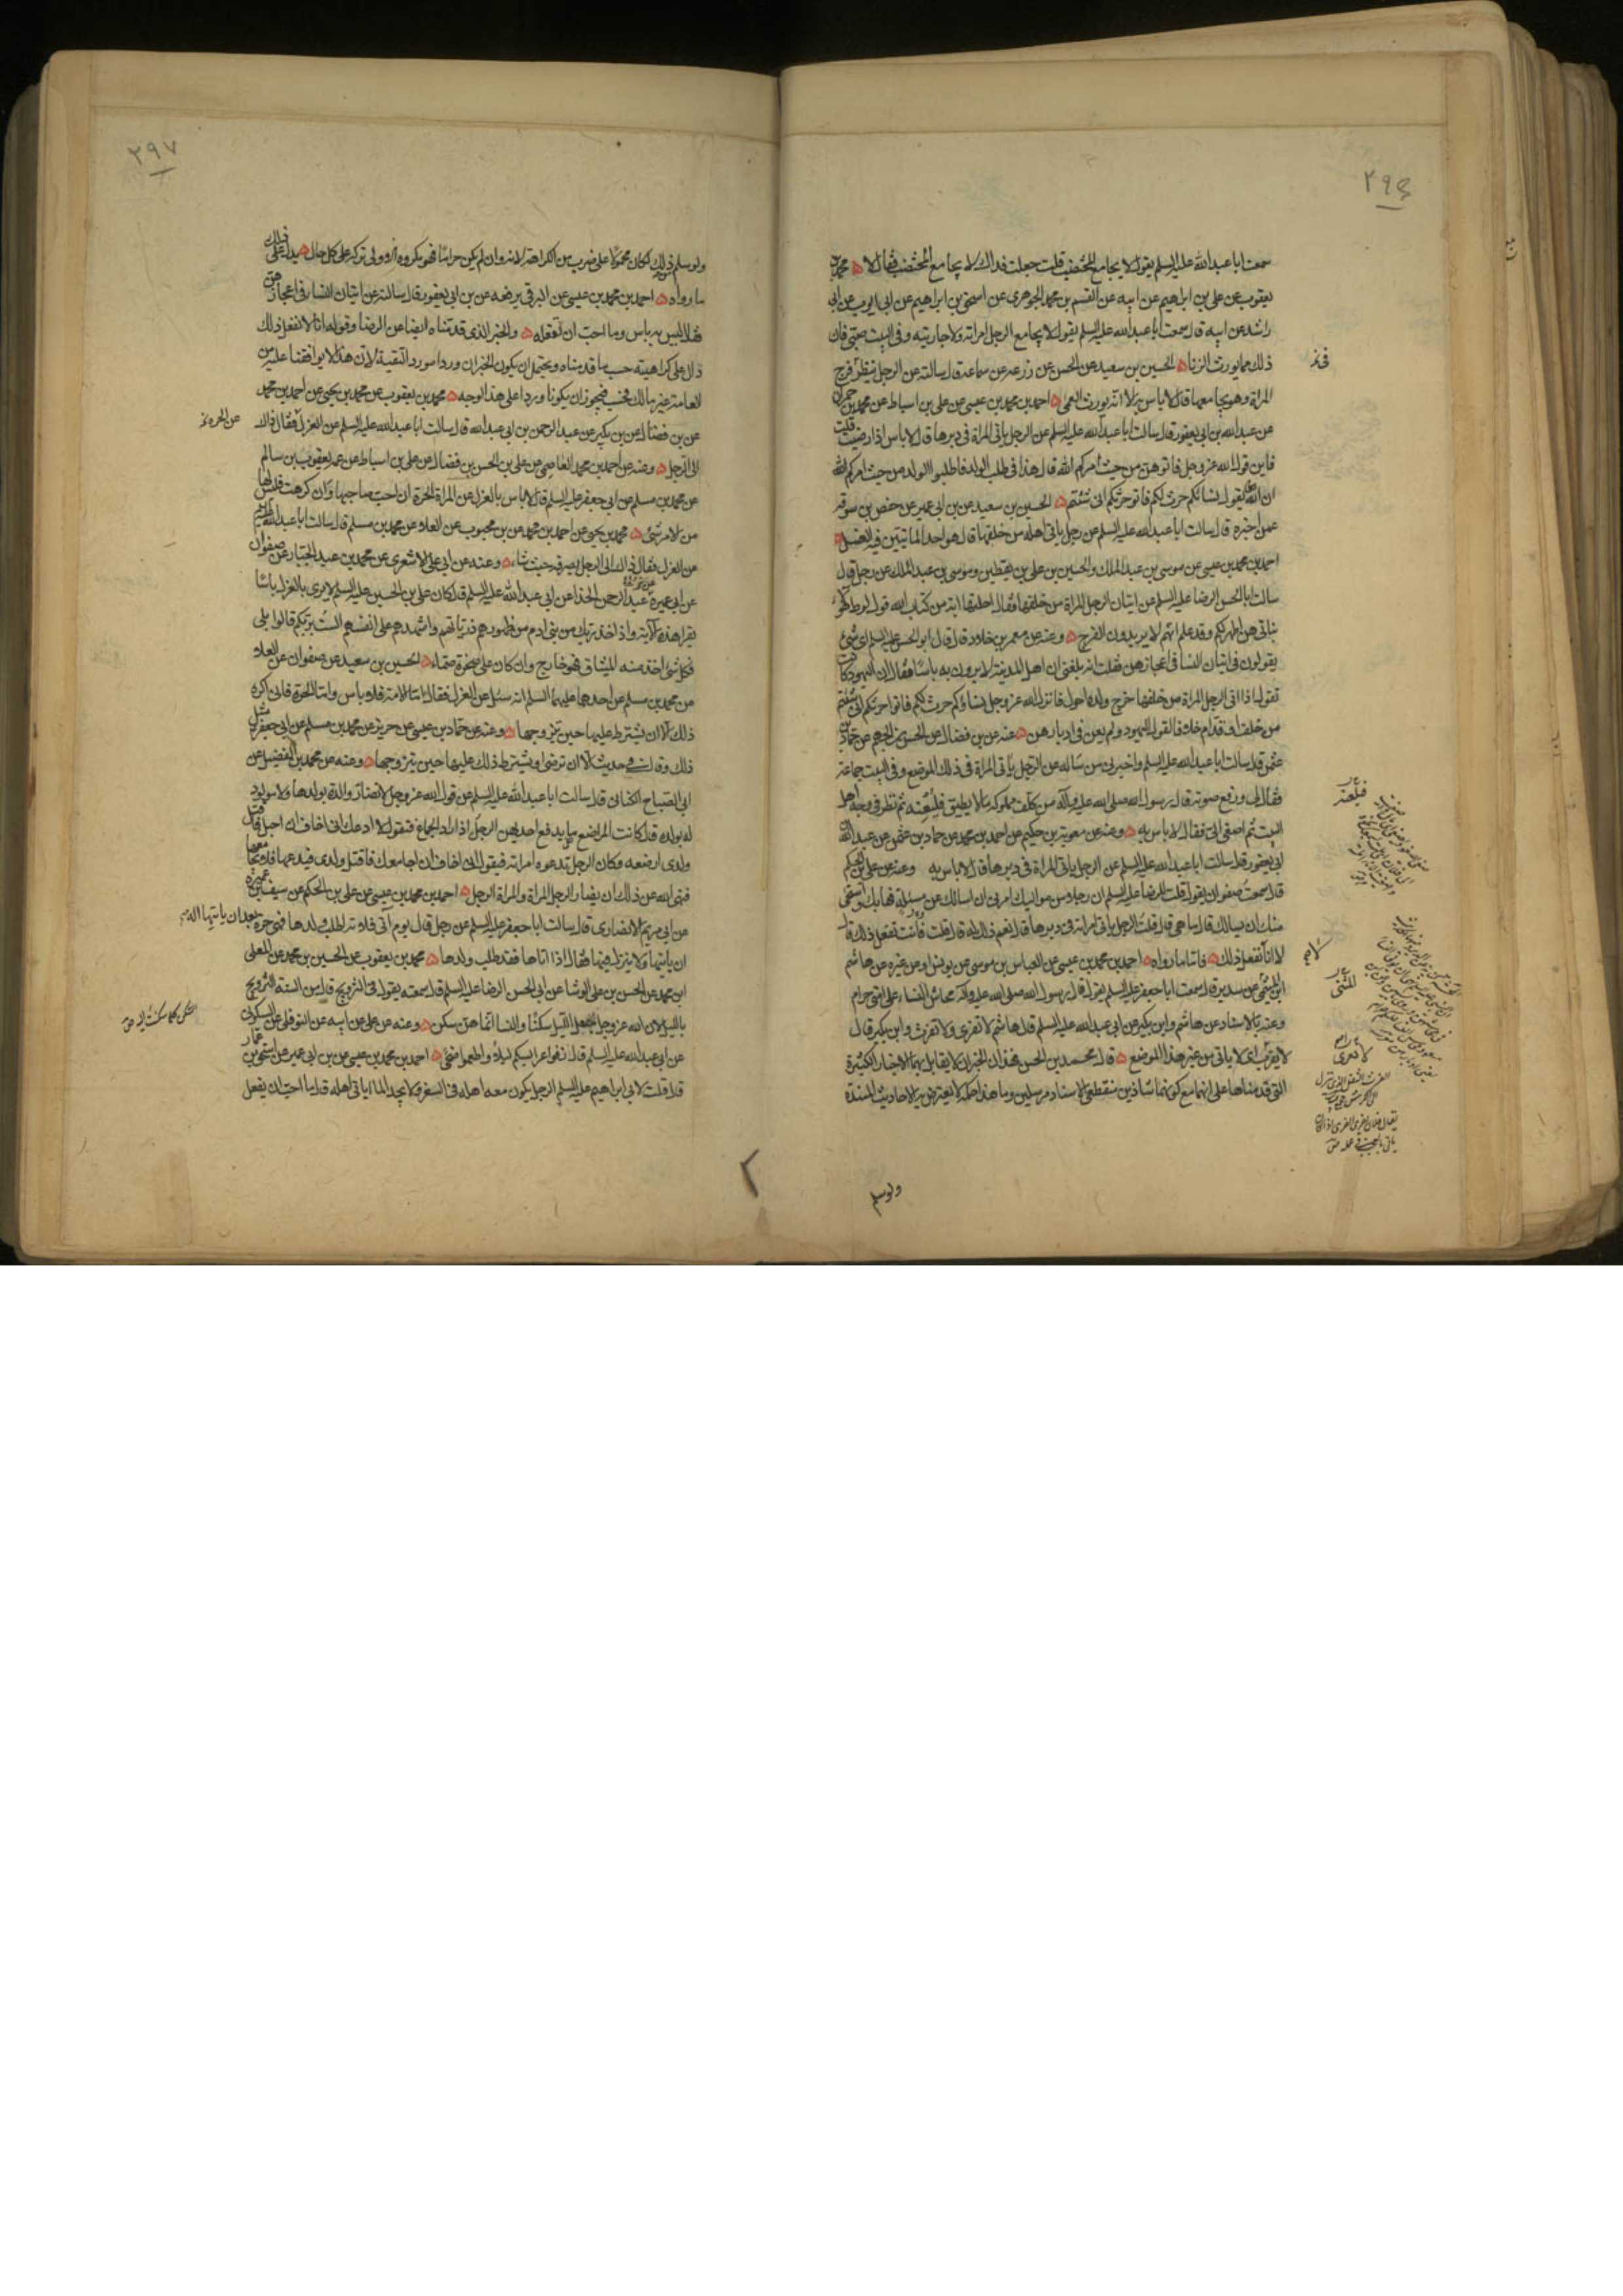 ٢٩٤
سمعت ابا عبدالله عليه السلم يقول لا يجامع المختضب قلت جعلت فداك لا يجامع المختضب فقال لا محمد بن
يعقوب عن علي بن ابراهيم عن ابيه عن القسم بن محمد الجوهري عن اسحق بن ابراهيم عن ابي ايوب عن ابي
راشد عن ابيه قال سمعت ابا عبدالله عليه السلم يقول لا يجامع الرجل امراته ولا جاريته وفي البيت صبي فان
ذلك مما يورث الزنا الحسين بن سعيد عن الحسن عن زرعه عن سماعة قال سالته عن الرجل ينظر في فرج
المراة وهو يجامعها قال لا باس به الا انه يورث العمى احمد بن محمد بن عيسى عن علي بن اسباط عن محمد بن حمران
عن عبدالله بن ابي يعفور قال سالت ابا عبدالله عليه السلم عن الرجل ياتي المراة في دبرها قال لا باس اذا رضيت قلت
فاين قول الله عز وجل فاتوهن من حيث امركم الله قال هذا في طلب الولد فاطلبوا الولد من حيث امركم الله
ان الله يقول نساؤكم حرث لكم فاتوا حرثكم انى شئتم الحسين بن سعيد عن بن ابي عمير عن حفص بن سوقه
عمن اخبره قال سالت ابا عبدالله عليه السلم عن رجل ياتي اهله من خلفها قال هو احد الماتيين فيه الغسل
احمد بن محمد بن عيسى عن موسى بن عبد الملك والحسين بن علي بن يقطين وموسى بن عبد الملك عن رجل قال
سالت ابا الحسن الرضا عليه السلم عن اتيان الرجل المراة من خلفها فقال احلتها اية من كتاب الله قول لوط هؤلاء
بناتي هن اطهر لكم وقد علم انهم لا يريدون الفرج وعنه عن معمر بن خلاد قال قال ابو الحسن عليه السلم اي شيء
يقولون في اتيان النسا في اعجازهن فقلت انه بلغني ان اهل المدينة لا يرون به باسا فقال ان اليهود كانت
تقول اذا اتى الرجل المراة من خلفها خرج ولده احول فانزل الله عز وجل نساؤكم حرث لكم فاتوا حرثكم انى شئتم
من خلف او قدام خلافا لقول اليهود ولم يعن في ادبارهن عنه عن بن فضال عن الحسن بن الجهم عن حماد بن
عثمن قال سالت ابا عبدالله عليه السلم واخبرني من ساله عن الرجل ياتي المراة في ذلك الموضع وفي البيت جماعة
فقال لي ورفع صوته قال رسول الله صلى الله عليه وآله من كلف مملوكه ما لا يطيق فليعنه ثم نظر في وجه اهل
البيت ثم اصغى الي فقال لا باس به وعنه عن معوية بن حكيم عن احمد بن محمد عن حماد بن عثمن عن عبدالله
ابي يعفور قال سالت ابا عبدالله عليه السلم عن الرجل ياتي المراة في دبرها قال لا باس به وعنه عن علي بن الحكم
قال سمعت صفوان يقول قلت للرضا عليه السلم ان رجلا من مواليك امرني ان اسالك عن مسئلة فهابك واستحى
منك ان يسالك قال ما هي قال قلت الرجل ياتي امراته في دبرها قال نعم ذلك له قال قلت فانت تفعل ذلك قال
لا انا لا نفعل ذلك فاما ما رواه احمد بن محمد بن عيسى عن العباس بن موسى عن يونس او عن غيره عن هاشم
ابن المثنى عن سدير قال سمعت ابا جعفر عليه السلم يقول قال رسول الله صلى الله عليه وآله محاش النساء على امتي حرام
وعنه بالاسناد عن هاشم وابن بكير عن ابي عبدالله عليه السلم قال هاشم لا تفري ولا تفرث وابن بكير قال
لا يفرث اي لا ياتي من غير هذا الموضع قال محمد بن الحسن فهذان الخبران لا يقابل بهما الاخبار الكثيرة
التي قدمناها على انهما مع كونهما شاذين منقطعي الاسناد مرسلين وما هذا حكمه لا يعترض به الاحاديث المسندة
ولو سلم
فليعنه
للمثنى
٢٩٧
ولو سلم ذلك لكان محمولا على ضرب من الكراهية لانه وان لم يكن حراما فهو مكروه الاولى تركه على كل حال يدل على ذلك
ما رواه احمد بن محمد بن عيسى عن البرقي يرفعه عن بن ابي يعفور قال سالته عن اتيان النساء في اعجازهن
فقال ليس به باس وما احب ان تفعله والخبر الذي قدمناه ايضا عن الرضا وقوله انا لا نفعل ذلك
دال على كراهيته حسب ما قدمناه ويحتمل ان يكون الخبران وردا مورد التقية لان هذا لا يوافقنا عليه من
العامة غير مالك فحسب فيجوز ان يكونا وردا على هذا الوجه محمد بن يعقوب عن محمد بن يحيى عن احمد بن محمد
عن بن فضال عن بن بكير عن عبد الرحمن بن ابي عبدالله قال سالت ابا عبدالله عليه السلم عن العزل فقال ذاك
الى الرجل وعنه عن احمد بن محمد العاصمي عن علي بن الحسن بن فضال عن علي بن اسباط عن عمه يعقوب بن سالم
عن محمد بن مسلم عن ابي جعفر عليه السلم قال لا باس بالعزل عن المراة الحرة ان احب صاحبها وان كرهت فليس لها
من الامر شيء محمد بن يحيى عن احمد بن محمد عن بن محبوب عن العلاء عن محمد بن مسلم قال سالت ابا عبدالله عليه السلم
عن العزل فقال ذاك الى الرجل يصرفه حيث شاء وعنه عن ابي علي الاشعري عن محمد بن عبد الجبار عن صفوان
عن ابن ابي عمير عن عبد الرحمن الحذاء عن ابي عبدالله عليه السلم قال كان علي بن الحسين عليه السلم لا يرى بالعزل باسا
يقرا هذه الآية واذ اخذ ربك من بني ادم من ظهورهم ذرياتهم واشهدهم على انفسهم الست بربكم قالوا بلى
فكل شيء اخذ منه الميثاق فهو خارج وان كان على صخرة صماء الحسين بن سعيد عن صفوان عن العلاء
عن محمد بن مسلم عن احدهما عليهما السلم انه سئل عن العزل فقال اما الامة فلا باس واما الحرة فاني اكره
ذلك الا ان يشترط عليها حين يتزوجها وعنه عن حماد بن عيسى عن حريز عن محمد بن مسلم عن ابي جعفر مثل
ذلك وقال في حديثه الا ان ترضى او يشترط ذلك عليها حين يتزوجها وعنه عن محمد بن الفضيل عن
ابي الصباح الكناني قال سالت ابا عبدالله عليه السلم عن قول الله عز وجل لا تضار والدة بولدها ولا مولود
له بولده قال كانت المراضع مما يدفع احديهن الرجل اذا اراد الجماع فتقول لا ادعك اني اخاف ان احبل فاقتل
ولدي ارضعه وكان الرجل تدعوه امراته فيقول اني اخاف ان اجامعك فاقتل ولدي فيدعها فلا يجامعها
فنهى الله عن ذلك ان يضار الرجل المراة والمراة الرجل احمد بن محمد بن عيسى عن علي بن الحكم عن سيف بن عميرة
عن ابي مريم الانصاري قال سالت ابا جعفر عليه السلم عن رجل قال يوم آتي فلانة اطلب ولدها فهي حرة بعد ان ياتيها اله
ان ياتيها ولا ينزل فيها فقال اذا اتاها فقد طلب ولدها محمد بن يعقوب عن الحسين بن محمد عن المعلى
ابن محمد عن الحسن بن علي الوشا عن ابي الحسن الرضا عليه السلم قال سمعته يقول في التزويج قال من السنة التزويج
بالليل لان الله عز وجل جعل الليل سكنا والنسا انما هن سكن وعنه عن علي عن ابيه عن النوفلي عن السكوني
عن ابي عبدالله عليه السلم قال زفوا عرايسكم ليلا واطعموا ضحى احمد بن محمد بن عيسى عن بن ابي عمير عن اسحق بن عمار
قال قلت لابي ابراهيم عليه السلم الرجل يكون معه اهله في السفر ولا يجد الماء اياتي اهله قال ما احب ان يفعل
عن الحرة